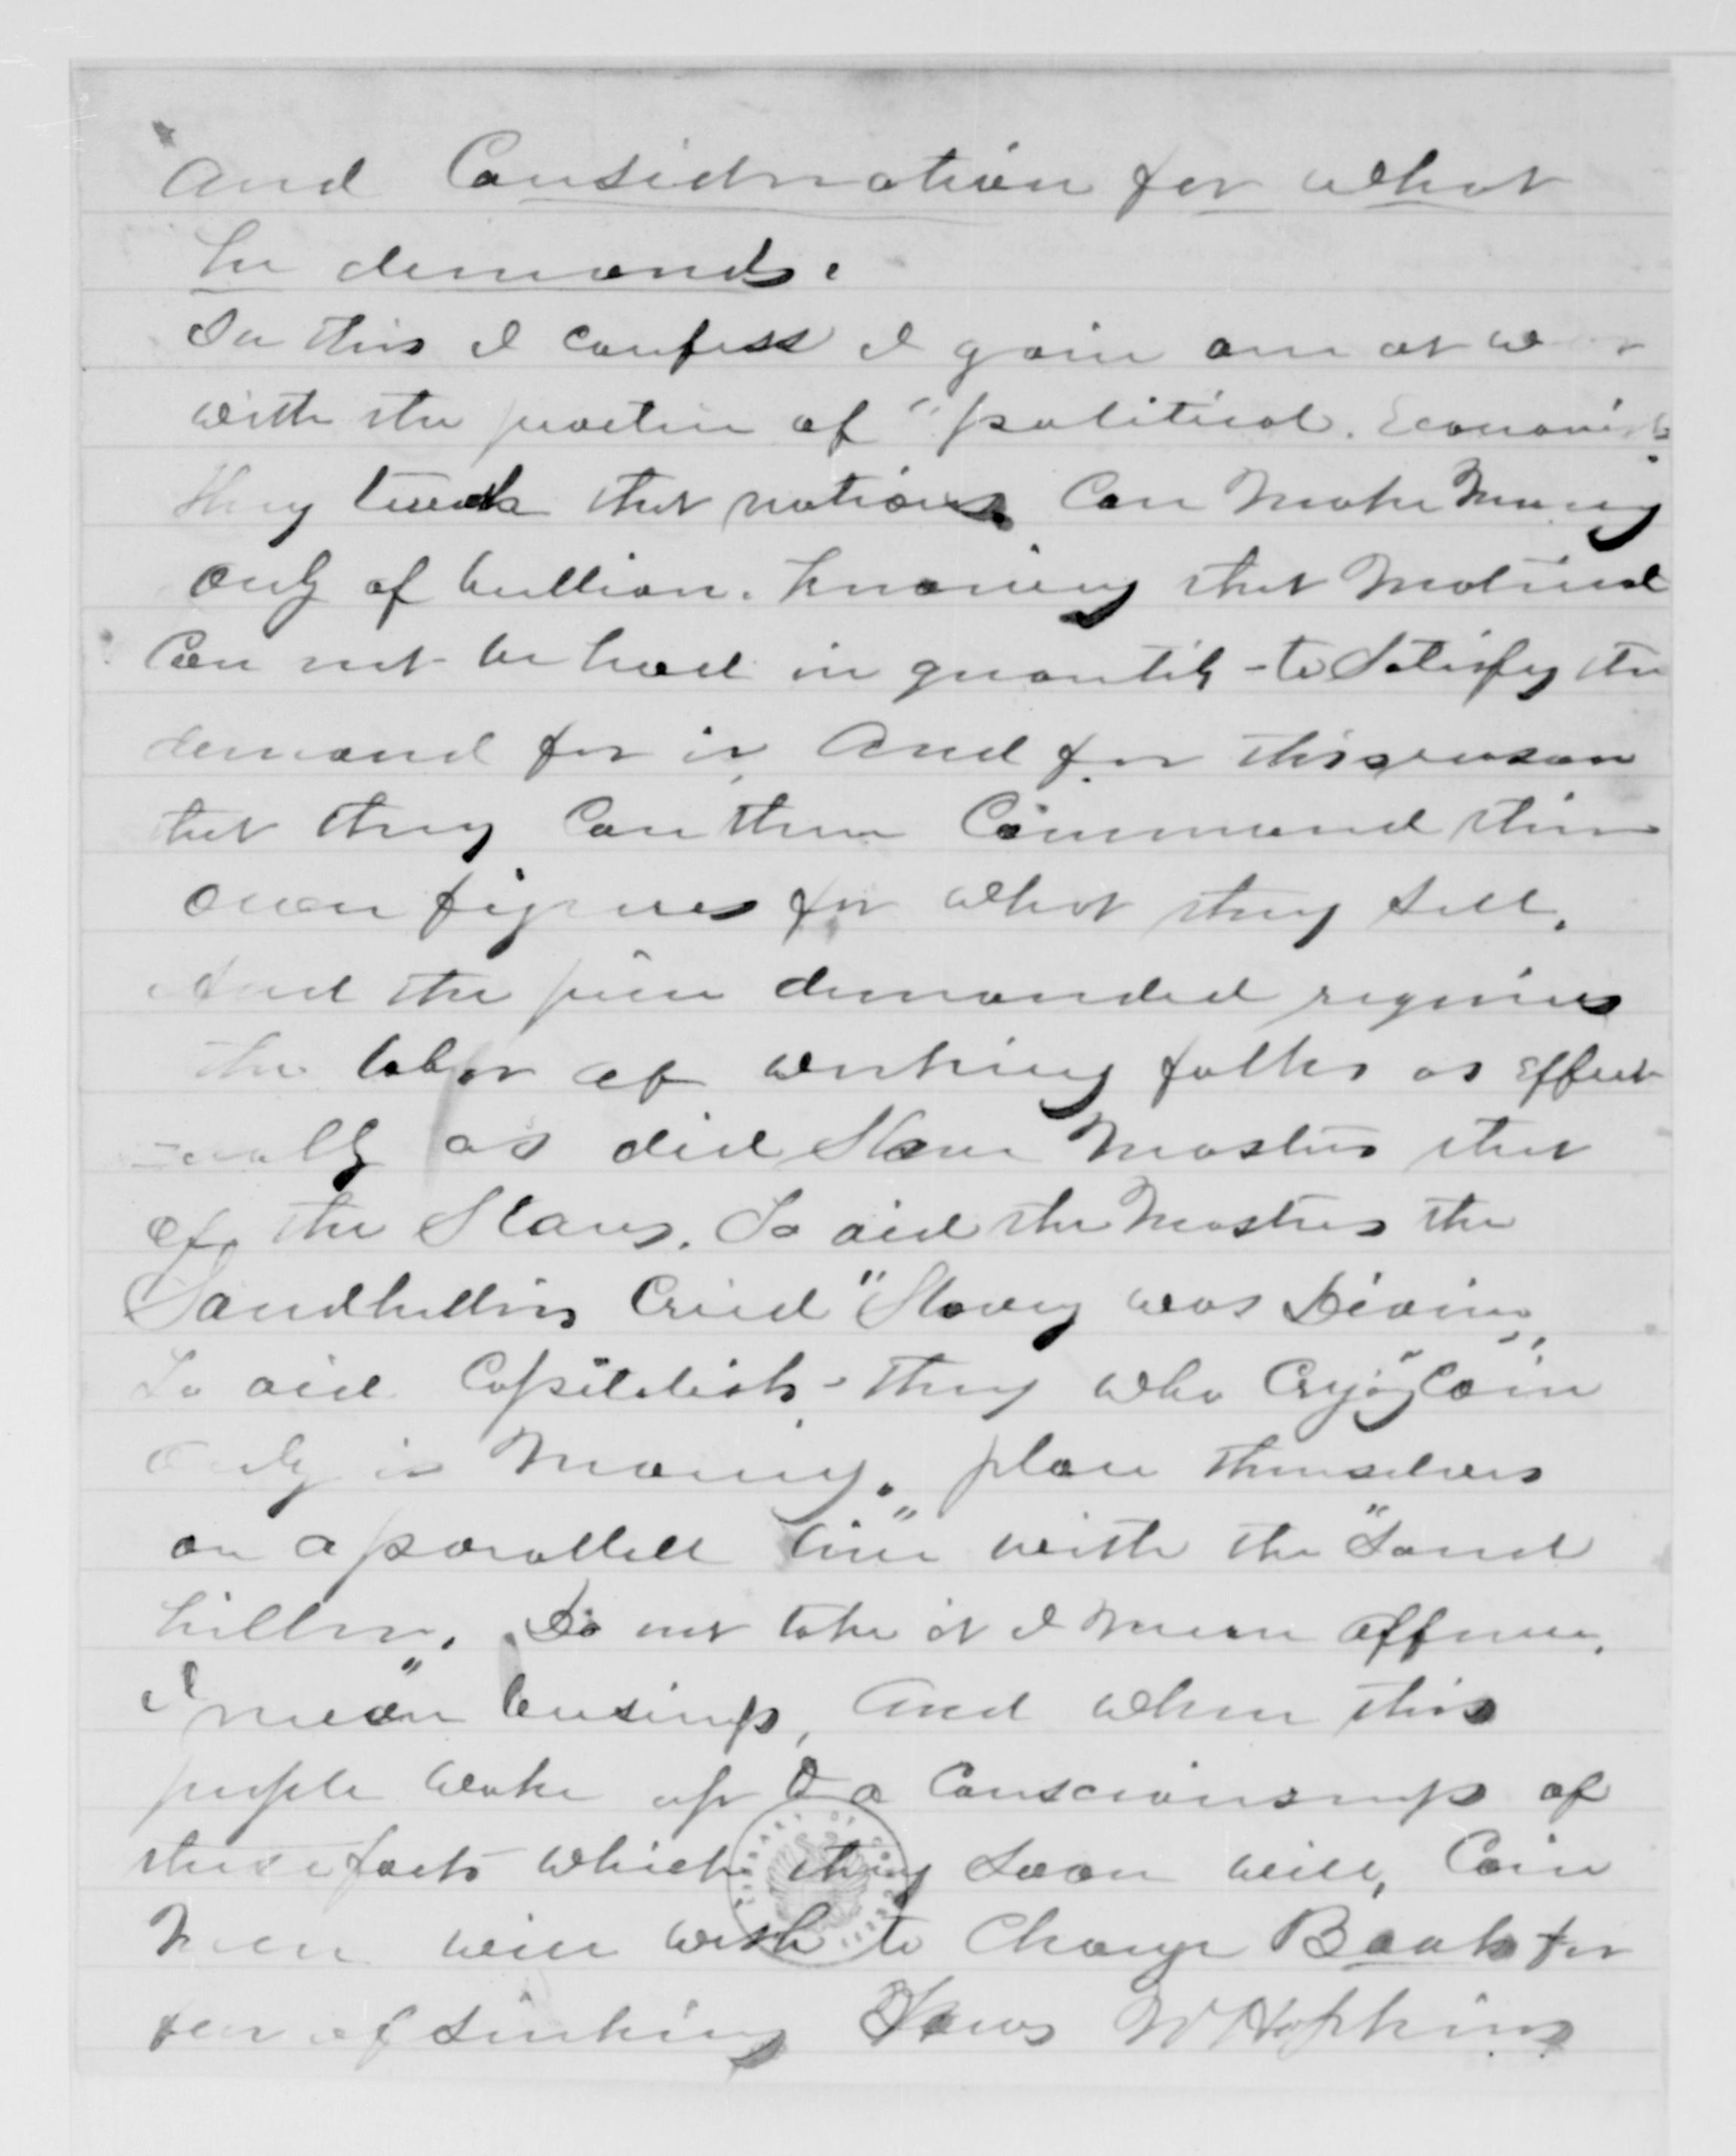 and Consideration for what
he demands.
In this I confess I join am at war
with the practice of "political. Economists
They teach that nations can make money
only of bullion. Knowing that material
Can not be had in quantity - to satisfy the
demand for it, and for this reason
that they can then Command their
own figures for what they sell.
And the price demanded requires
the labor of working folks as effect
-ually as did Slave Masters that
of the Slaves. To aid the Masters the
Sandhillers Cried "Slavery was Divine"
To aid Capitalists - they who Cry "Coin
only is money." place themselves
on a parallell line" with the "Sand
hillers. Do not take it I mean offence.
I "mean business, and when this
people wake up to a Consciousness of
these facts which they soon will, Coin
men will wish to Change Boats for
fear of sinking Yours W Hopkins